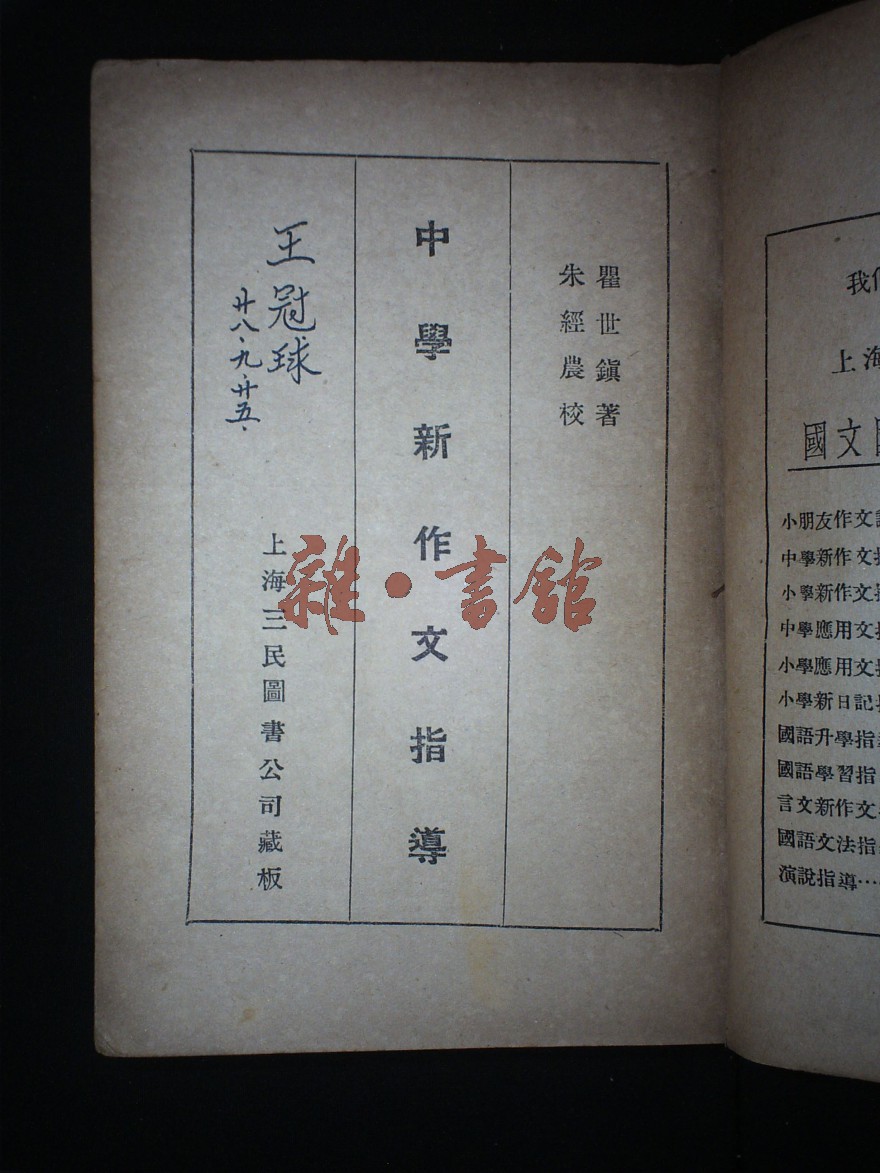 瞿世鎭著
朱經農校
中學新作文指導
王冠球
廿八、九、廿五、
上海三民圖書公司藏板
雜·書館
我
上海
國文
小朋友作文
中學新作文
小學新作文
中學應用文
小學應用文
小學新日記
國語升學指
國語學習指
言文新作文
國語文法指
演說指導…